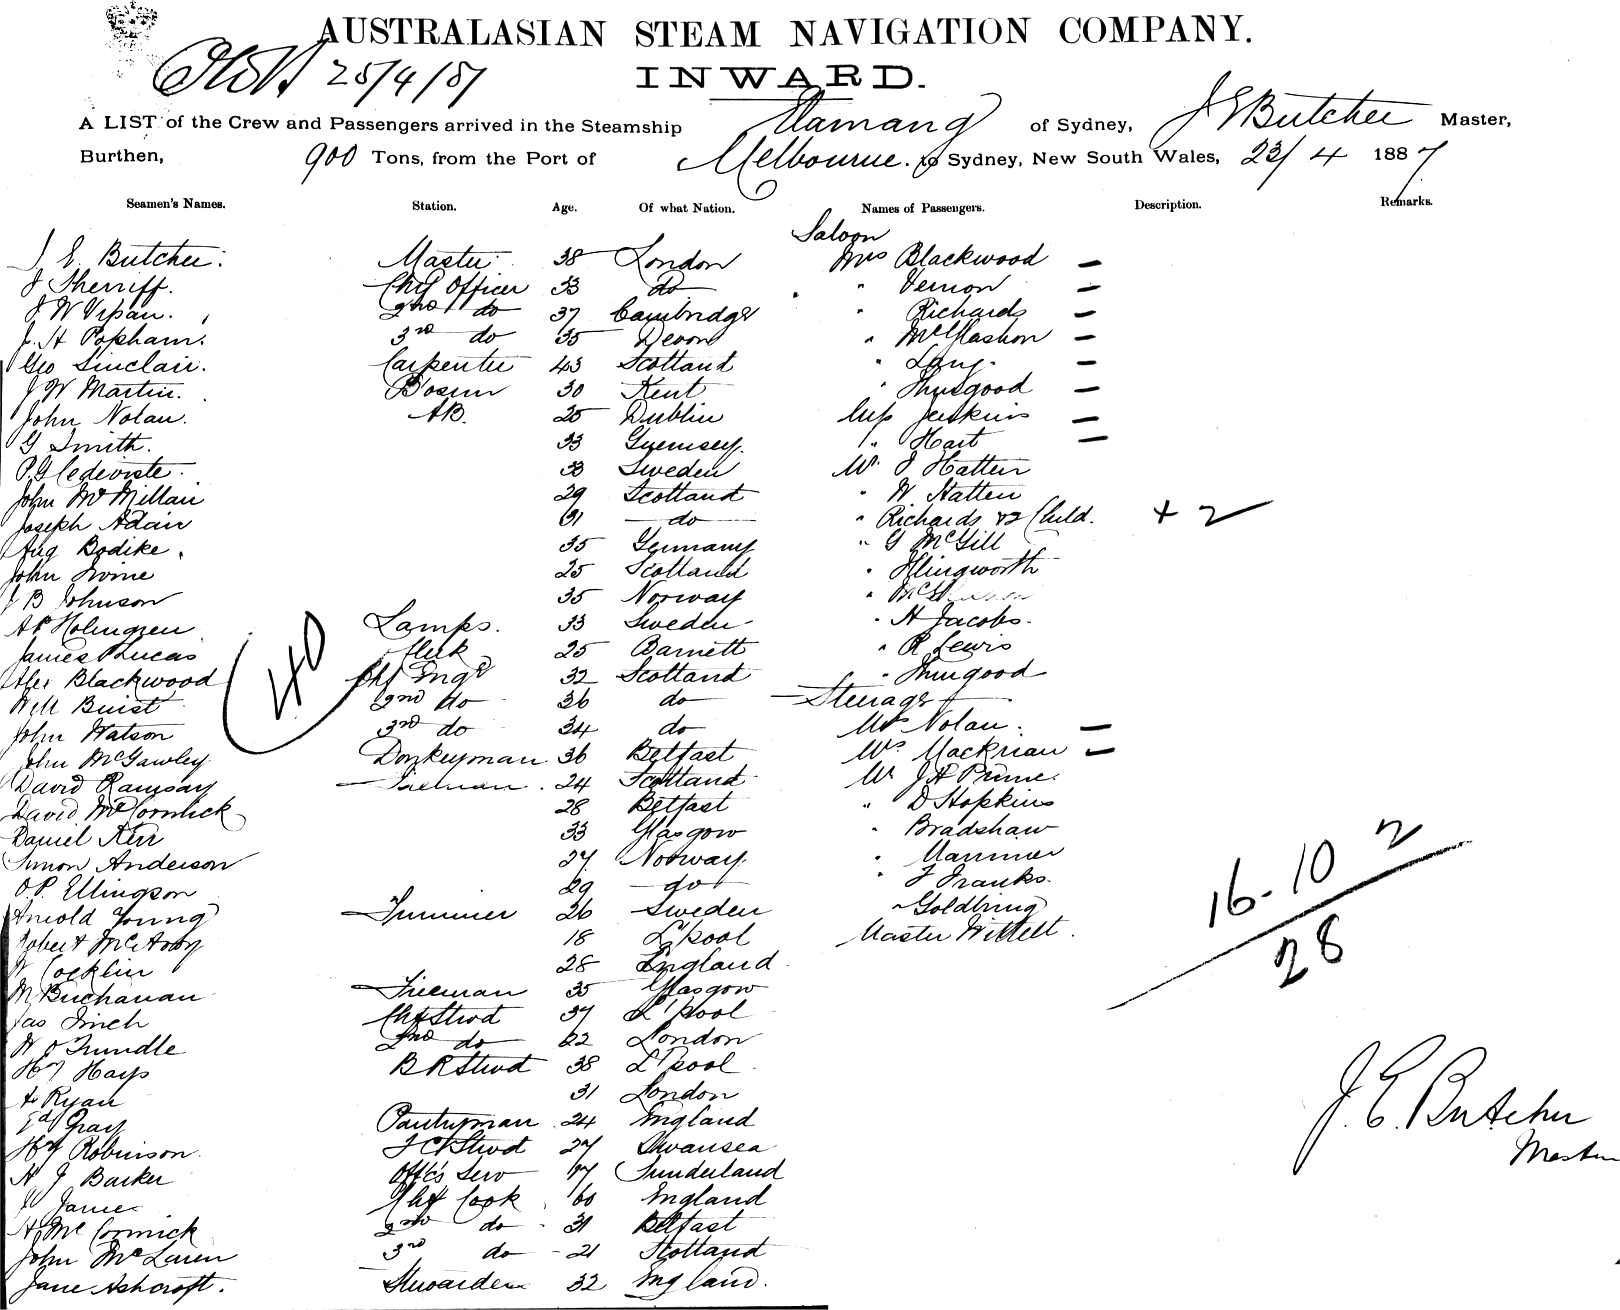 AUSTRALASIAN STEAM NAVIGATION COMPANY.
25/4/87
INWARD.
A LIST of the Crew and Passengers arrived in the Steamship of Sydney, J E Butcher Master,
Burthen, 900 Tons, from the Port of Melbourne. to Sydney, New South Wales, 23/4 1887
Seamen's Names. Station. Age. Of what Nation. Names of Passengers. Description. Remarks.
Saloon
J E. Butcher. Master 38 London Mrs Blackwood —
J Sherriff. Chf Officer 33 do " Vernon —
J W Vipan. 2nd do 37 Cambridge " Richards —
J. H Popham. 3rd do 35 Devon " McGlashon —
Geo Sinclair. Carpenter 43 Scotland " Lang. —
J W Martin. Bosun 30 Kent " Thurgood —
John Nolan. AB. 25 Dublin Miss Jenkins —
G Smith. 33 Guernsey. " Hart —
33 Sweden Mr. J Hatten
John McMillan 29 Scotland " W Hatten
Joseph Adair 61 do " Richards & 2 Child. + 2
Aug Bodike. 35 Germany " G McGill
John Irvine 25 Scotland " Illingworth
J B Johnson 35 Norway "
A P Holmgren Lamps. 33 Sweden " H Jacobs.
James Lucas 25 Barnett " R Lewis
Alex Blackwood Chf Engr 32 Scotland " Thurgood
Will Buist 2nd do 36 do Steerage
John Watson 3rd do 34 do Mrs Nolan. —
40
John McGawley Donkeyman 36 Belfast Mrs Mackrian —
David Ramsay Fireman. 24 Scotland Mr J H Prime.
David McCormick 28 Belfast " D Hopkins
Daniel Kerr 33 Glasgow " Bradshaw
Simon Anderson 27 Norway. "
O. P. Ellingson 29 do " F Franks.
Arnold Young Trimmer 26 Sweden " Goldbring
Robert McAvoy 18 L'pool Master Wittelt.
W Cocklin 28 England.
16-10 2
28
M Buchanan Fireman 35 Glasgow
Jas Finch Chf Stwd 37 L'pool
W J Trundle 2nd do 22 London
Hy Hays B R Stwd 38 L'pool
A Ryan 31 London
Ed Gray Pantryman 24 England
Hy Robinson. F C Stwd 27 Swansea
H J Barker Offc's Serv 17 Sunderland
J. E. Butcher
Master
J James Chf Cook 60 England
H McCormick 2nd do 31 Belfast
John McLaren 3rd do 21 Scotland
Jane Ashcroft. Stewardess 32 England.